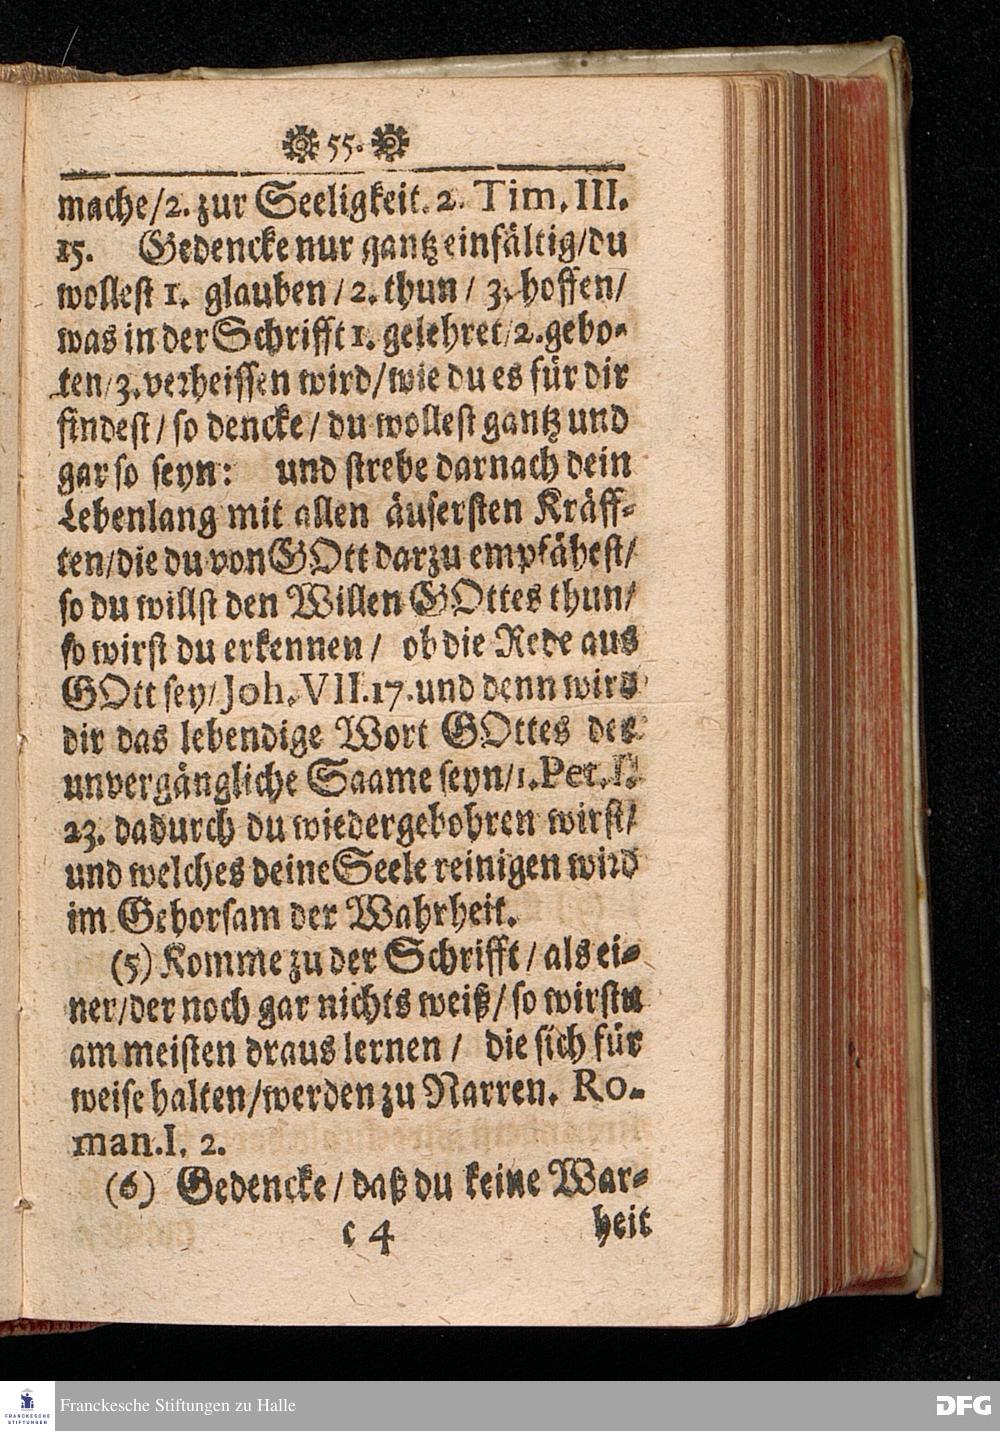 55.
mache/2. zur Seeligkeit. 2. Tim. III.
15. Gedencke nur gantz einfältig/du
wollest 1. glauben/2. thun/ 3. hoffen/
was in der Schrifft 1. gelehret/2. gebo-
ten/3. verheissen wird/wie du es für dir
findest/ so dencke/ du wollest gantz und
gar so seyn: und strebe darnach dein
Lebenlang mit allen äusersten Kräff-
ten/die du von GOtt darzu empfähest/
so du willst den Willen GOttes thun/
so wirst du erkennen/ ob die Rede aus
GOtt sey/Joh. VII. 17. und denn wird
dir das lebendige Wort GOttes der
unvergängliche Saame seyn/1. Pet. I.
23. dadurch du wiedergebohren wirst/
und welches deine Seele reinigen wird
im Gehorsam der Wahrheit.
(5) Komme zu der Schrifft/ als ei-
ner/der noch gar nichts weiß/ so wirstu
am meisten draus lernen/ die sich für
weise halten/werden zu Narren. Ro-
man. I. 2.
(6) Gedencke/ daß du keine War-
c 4 heit
FRANCKESCHE
STIFTUNGEN
Franckesche Stiftungen zu Halle
DFG